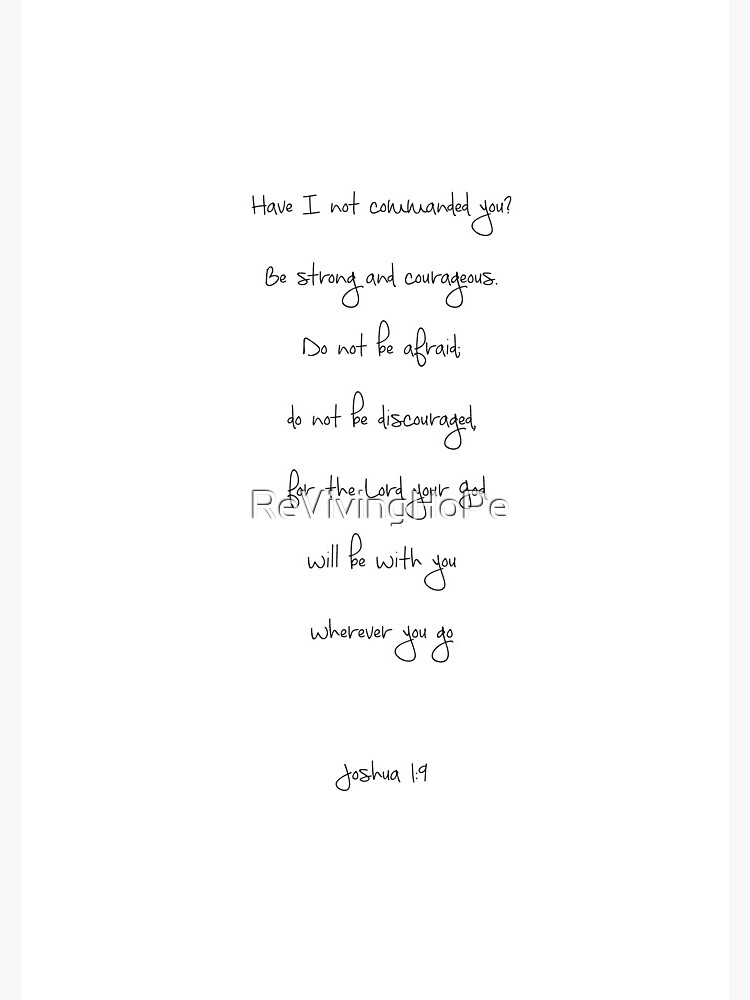 Have I not commanded you?
Be strong and courageous.
Do not be afraid;
do not be discouraged,
for the Lord your god
ReVivingHoPe
will be with you
wherever you go
Joshua 1:9